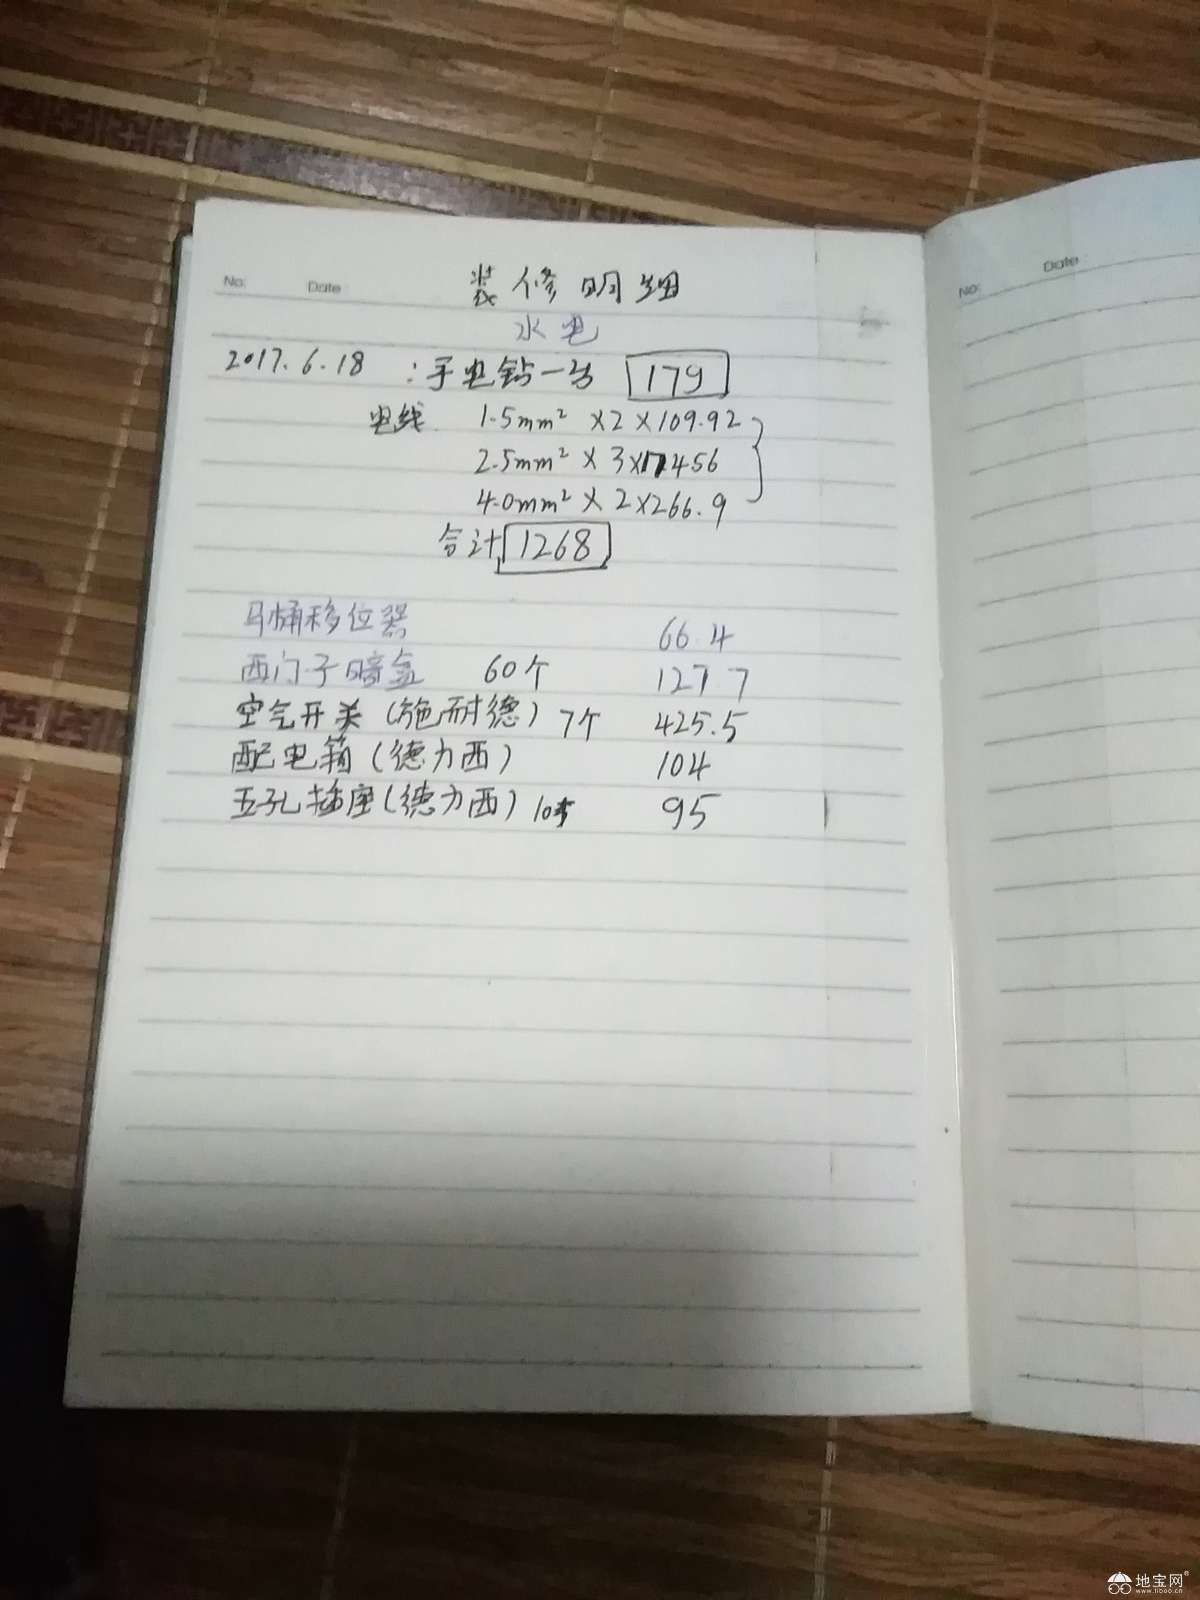 No:
Date
装修明细
水电
2017.6.18 :手电钻一台 179
电线 1.5mm² ×2×109.92
2.5mm² ×3×17456
4.0mm² ×2×266.9
合计 1268
马桶移位器 66.4
西门子暗盒 60个 127.7
空气开关(施耐德) 7个 425.5
配电箱(德力西) 104
五孔插座(德力西) 10 95
No:
Date
地宝网
www.tiboo.cn